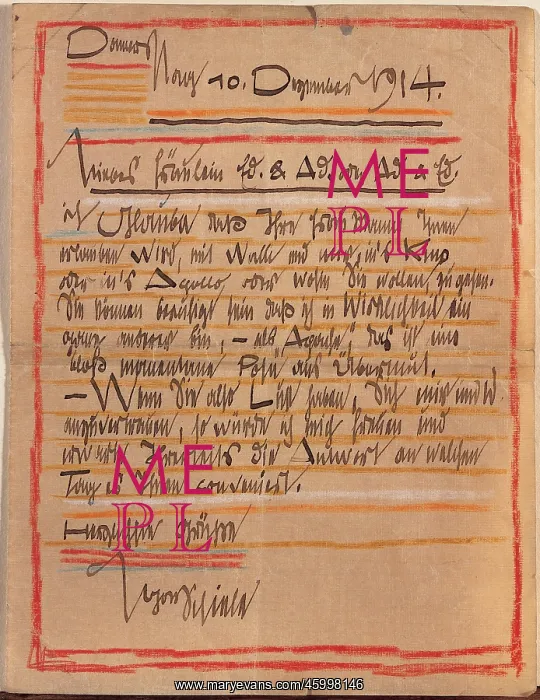 Donnerstag 10. Dezember 1914.
Liebes Fräulein Ed. & Ad. Ad & Ed.
ich Glaube daß Ihre Frau Mama Ihnen
erlauben wird, mit Wally und mir, in's Kino
oder in's Apollo, oder wohin Sie wollen, zu gehen.
Sie können beruhigt sein daß ich in Wirklichkeit ein
ganz anderer bin, – als „Apache", das ist eine
bloß momentane Pose aus Übermut.
– Wenn Sie also Lust haben, Sich mir und W.
anzuvertrauen, so würde ich mich freuen und
erwarte Ihrerseits die Antwort an welchem
Tag es Ihnen conveniert.
Herzliche Grüsse
Egon Schiele
ME
PL
ME
PL
www.maryevans.com/45998146